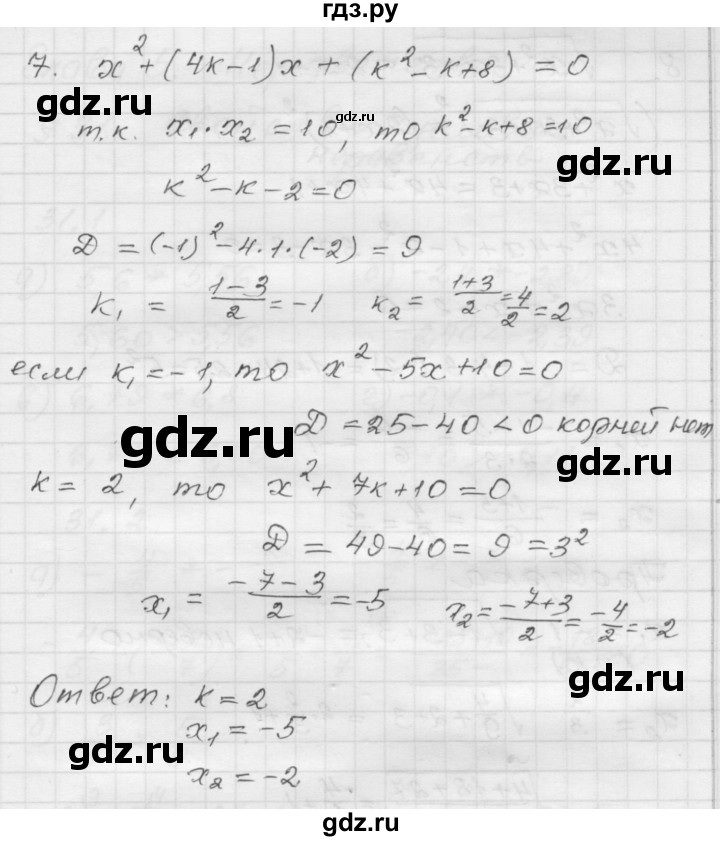 гдз.ру
7. x² + (4k-1)x + (k² - k+8) = 0
gdz.ru
т.к. x₁·x₂ = 10, то k²-k+8=10
k² -k-2=0
D = (-1)² -4·1·(-2) = 9
k₁ = (1-3)/2 = -1 k₂ = (1+3)/2 = 4/2 = 2
если k₁ = -1, то x² - 5x+10=0
gdz.ru
D = 25-40 <0 корней нет
gdz.ru
k = 2, то x² + 7k+10=0
D = 49-40 = 9 = 3²
x₁ = (-7-3)/2 = -5 x₂ = (-7+3)/2 = -4/2 = -2
gdz.ru
Ответ: k = 2
x₁ = -5
gdz.ru
x₂ = -2
gdz.ru
gdz.ru